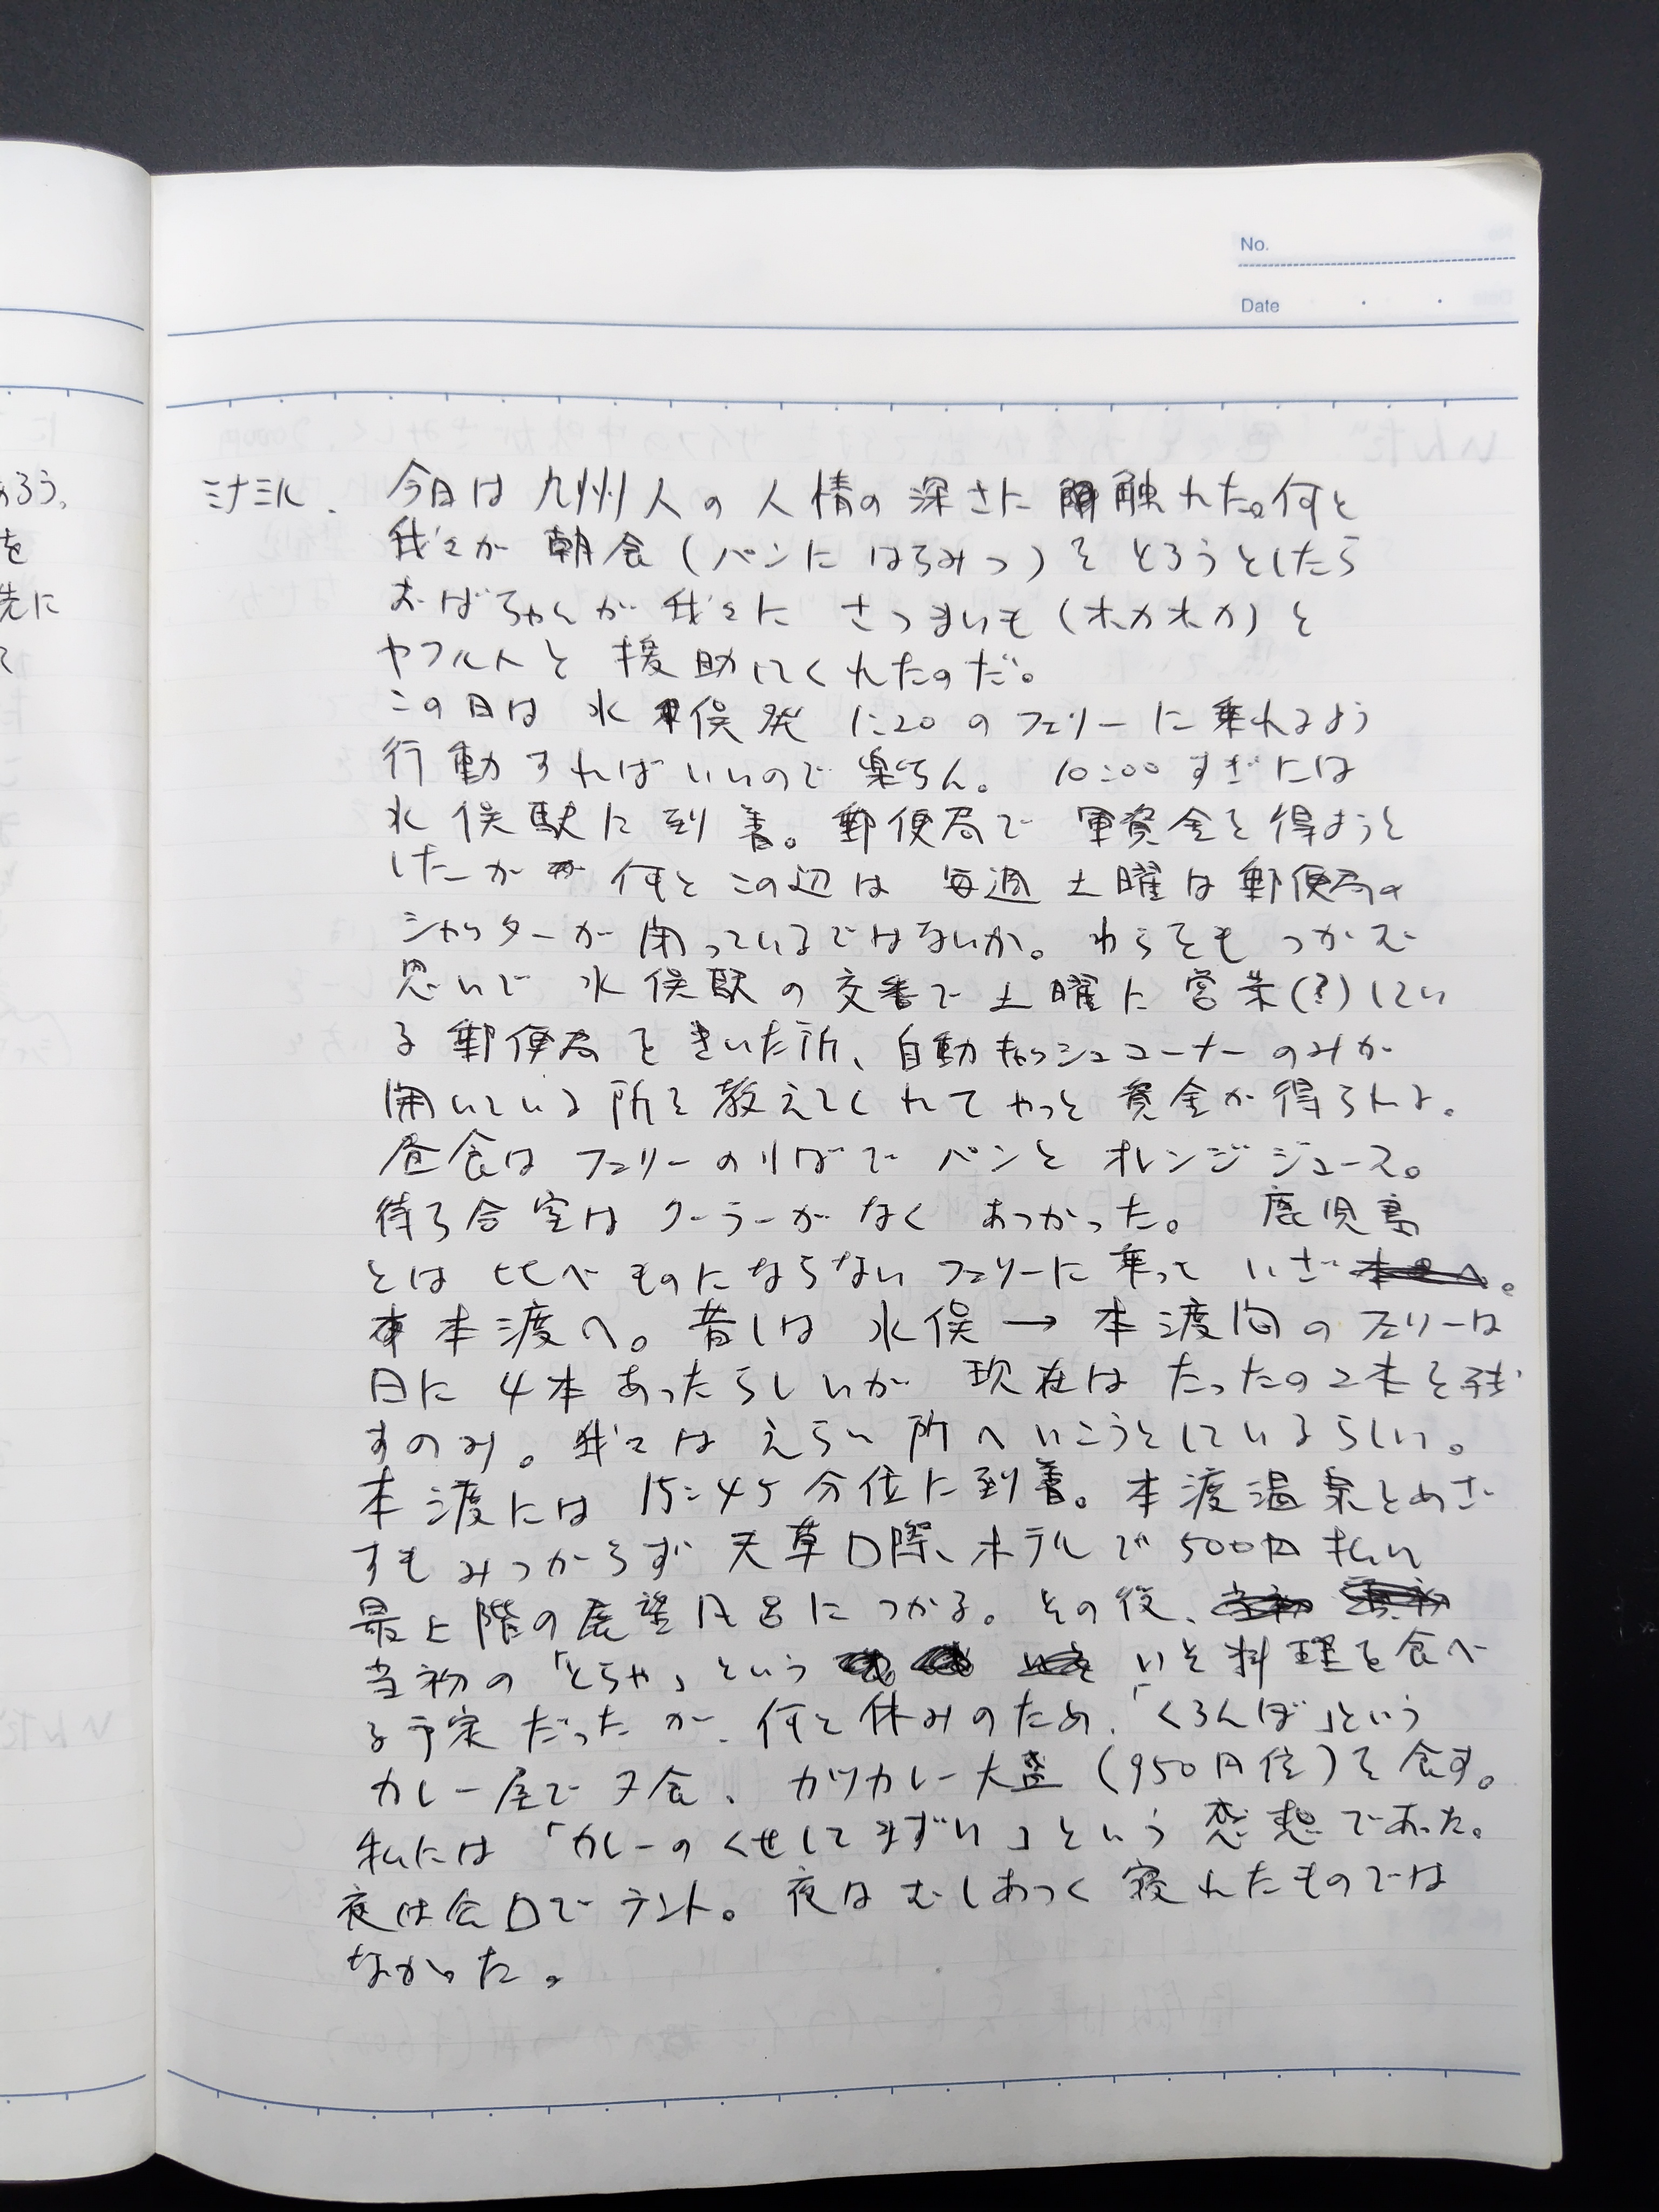 No.
Date
ミナミル. 今日は九州人の人情の深さに触れた。何と
我々が朝食(パンにはちみつ)をとろうとしたら
おばちゃんが我々にさつまいも(ホカホカ)と
ヤクルトを援助してくれたのだ。
この日は水俣発12:20のフェリーに乗れるよう
行動すればいいので楽ちん。10:00すぎには
水俣駅に到着。郵便局で軍資金を得ようと
したが何とこの辺は毎週土曜は郵便局の
シャッターが閉っているではないか。わらをもつかむ
思いで水俣駅の交番で土曜に営業(?)してい
る郵便局をきいた所、自動キャッシュコーナーのみが
開いている所を教えてくれてやっと資金が得られる。
昼食はフェリーのりばでパンとオレンジジュース。
待ち合室はクーラーがなくあつかった。鹿児島
とは比べものにならないフェリーに乗っていざ
本渡へ。昔しは水俣→本渡間のフェリーは
日に4本あったらしいが現在はたったの2本を残
すのみ。我々はえらい所へいこうとしているらしい。
本渡には15:45分位に到着。本渡温泉をめざ
すもみつからず天草国際ホテルで500円払い
最上階の展望風呂につかる。その後、
当初の「とらや」といういそ料理を食べ
る予定だったが、何と休みのため、「くろんぼ」という
カレー屋で夕食、カツカレー大盛(950円位)を食す。
私には「カレーのくせしてまずい」という感想であった。
夜は公口でテント。夜はむしあつく寝れたものでは
なかった。
ろう。
を
先に